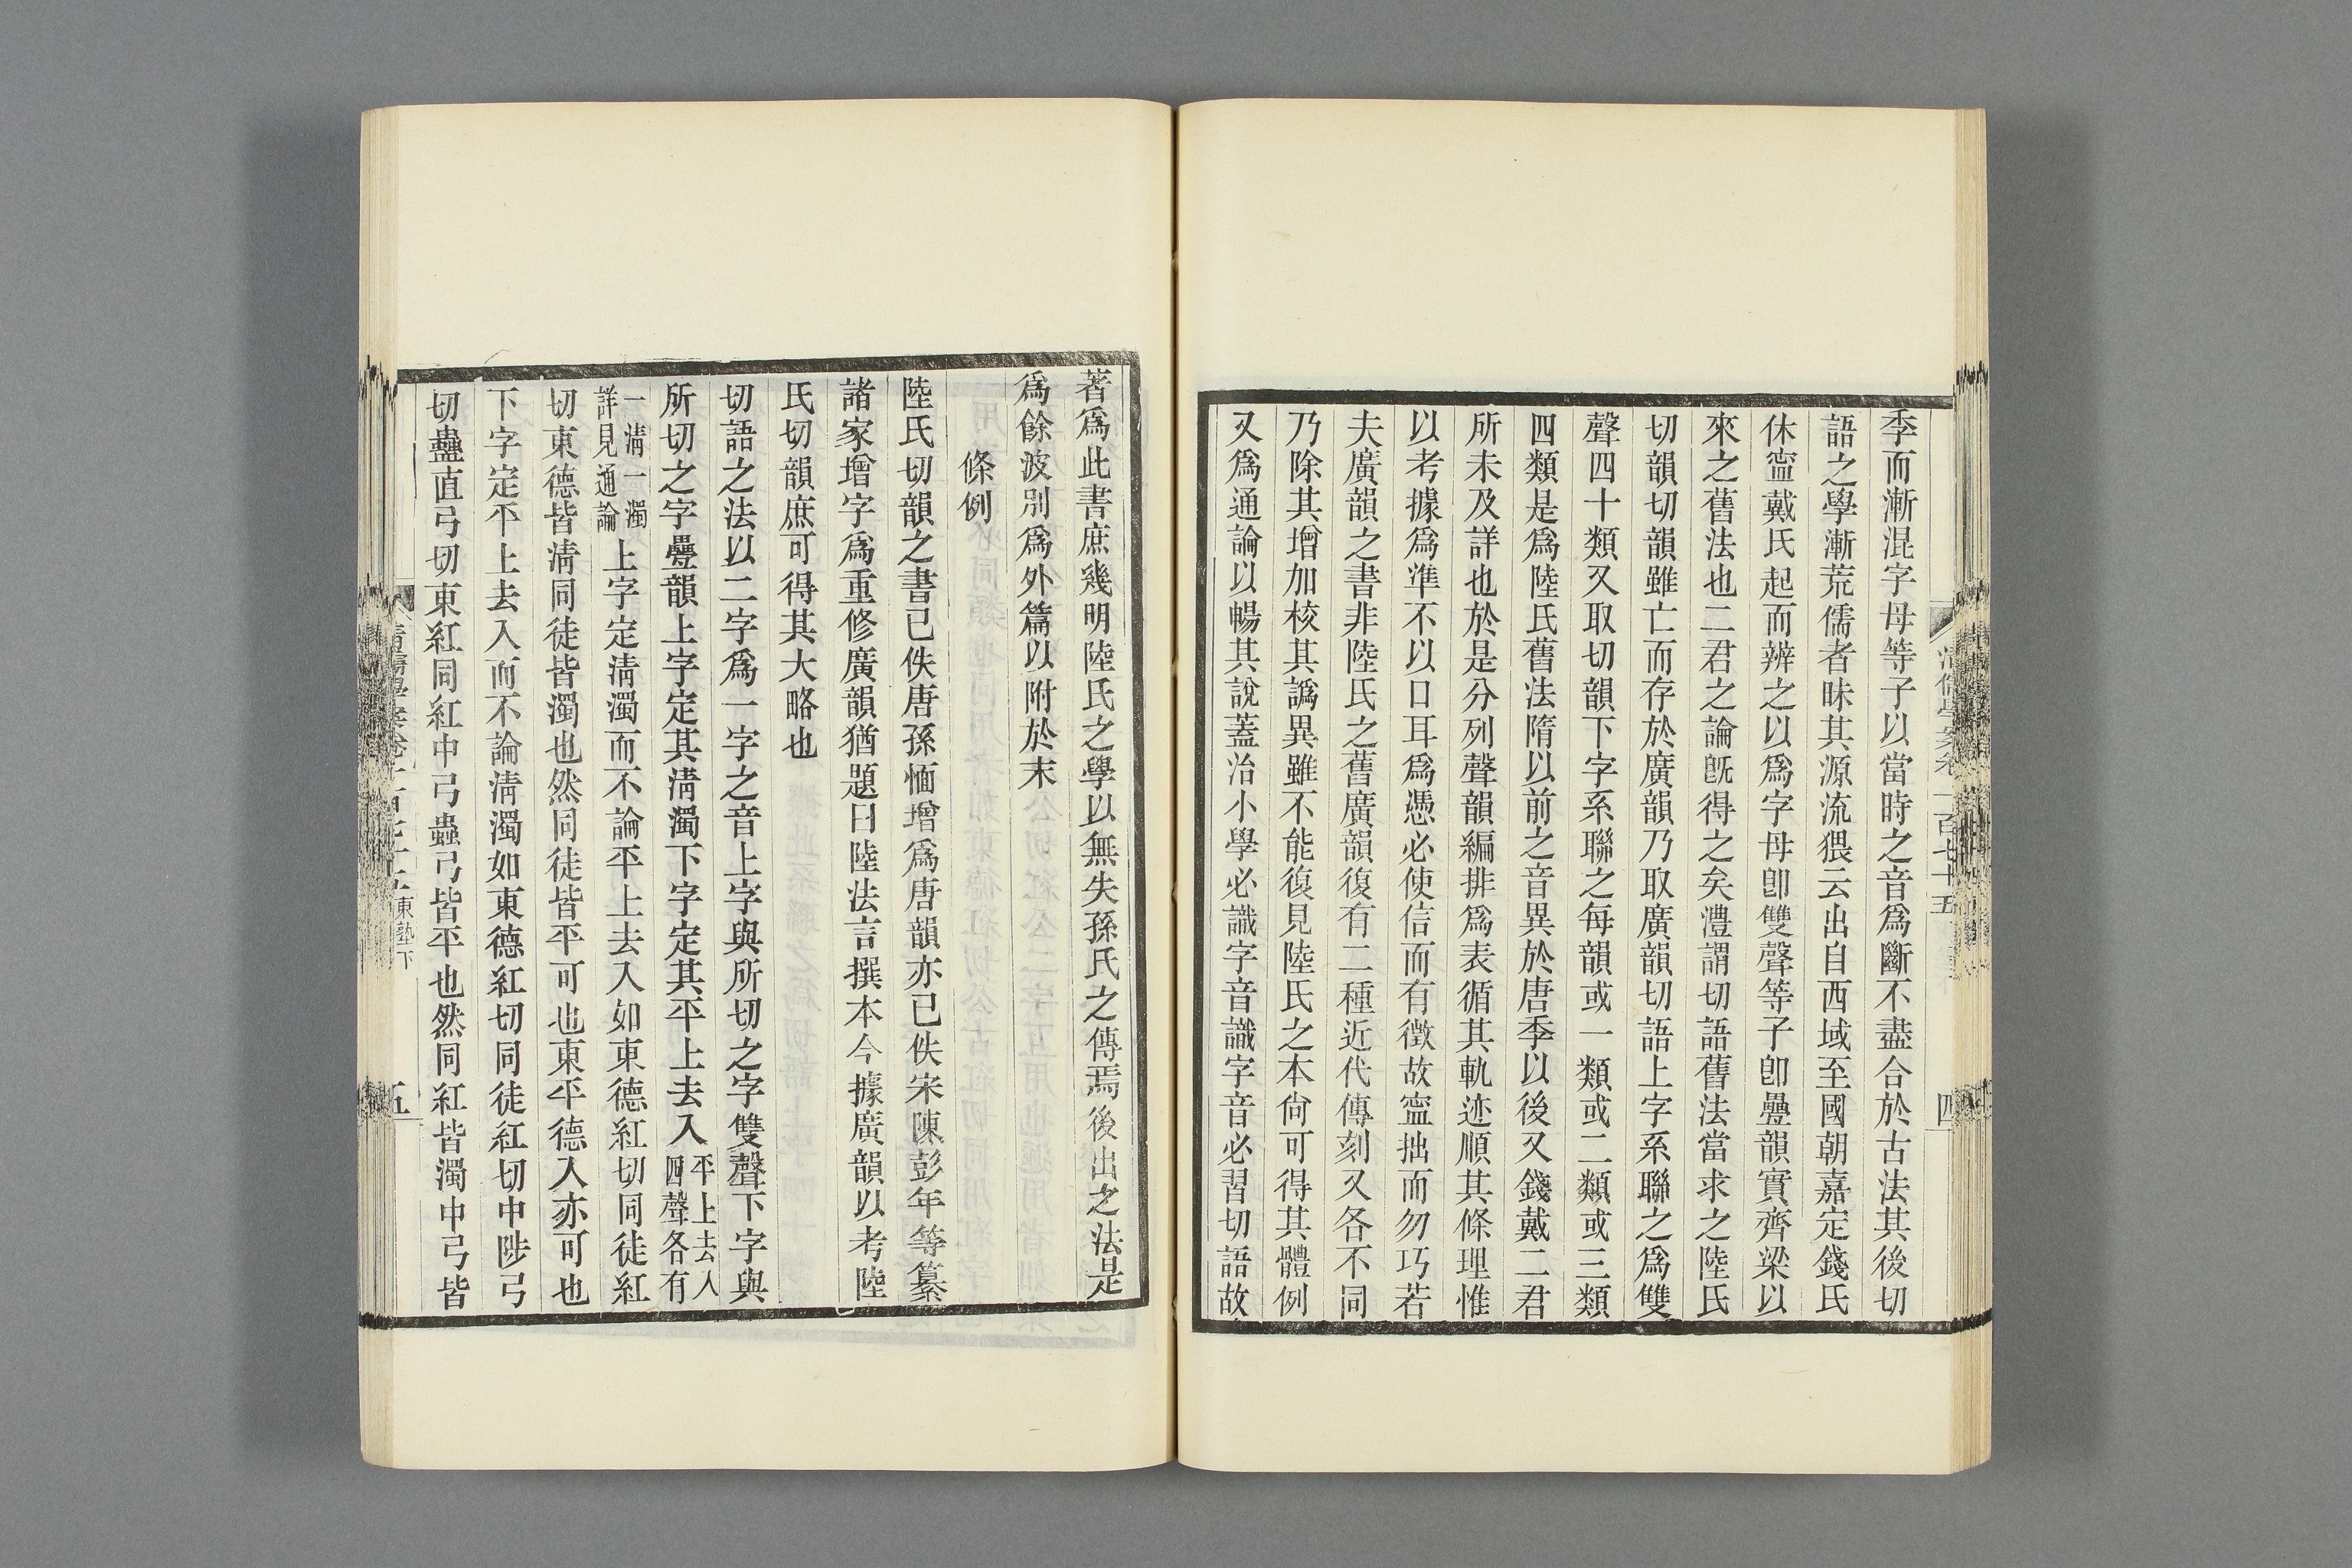 季而漸混字母等子以當時之音爲斷不盡合於古法其後切
語之學漸荒儒者昧其源流猥云出自西域至國朝嘉定錢氏
休寍戴氏起而辨之以爲字母卽雙聲等子卽疊韻實齊梁以
來之舊法也二君之論旣得之矣澧謂切語舊法當求之陸氏
切韻切韻雖亡而存於廣韻乃取廣韻切語上字系聯之爲雙
聲四十類又取切韻下字系聯之每韻或一類或二類或三類
四類是爲陸氏舊法隋以前之音異於唐季以後又錢戴二君
所未及詳也於是分列聲韻編排爲表循其軌迹順其條理惟
以考據爲準不以口耳爲憑必使信而有徵故寍拙而勿巧若
夫廣韻之書非陸氏之舊廣韻復有二種近代傳刻又各不同
乃除其增加校其譌異雖不能復見陸氏之本尙可得其體例
又爲通論以暢其說蓋治小學必識字音識字音必習切語故
著爲此書庶幾明陸氏之學以無失孫氏之傳焉後出之法是
爲餘波別爲外篇以附於末
條例
陸氏切韻之書已佚唐孫愐增爲唐韻亦已佚宋陳彭年等纂
諸家增字爲重修廣韻猶題曰陸法言撰本今據廣韻以考陸
氏切韻庶可得其大略也
切語之法以二字爲一字之音上字與所切之字雙聲下字與
所切之字疊韻上字定其淸濁下字定其平上去入平上去入四聲各有
一淸一濁詳見通論上字定淸濁而不論平上去入如東德紅切同徒紅
切東德皆淸同徒皆濁也然同徒皆平可也東平德入亦可也
下字定平上去入而不論淸濁如東德紅切同徒紅切中陟弓
切蟲直弓切東紅同紅中弓蟲弓皆平也然同紅皆濁中弓皆